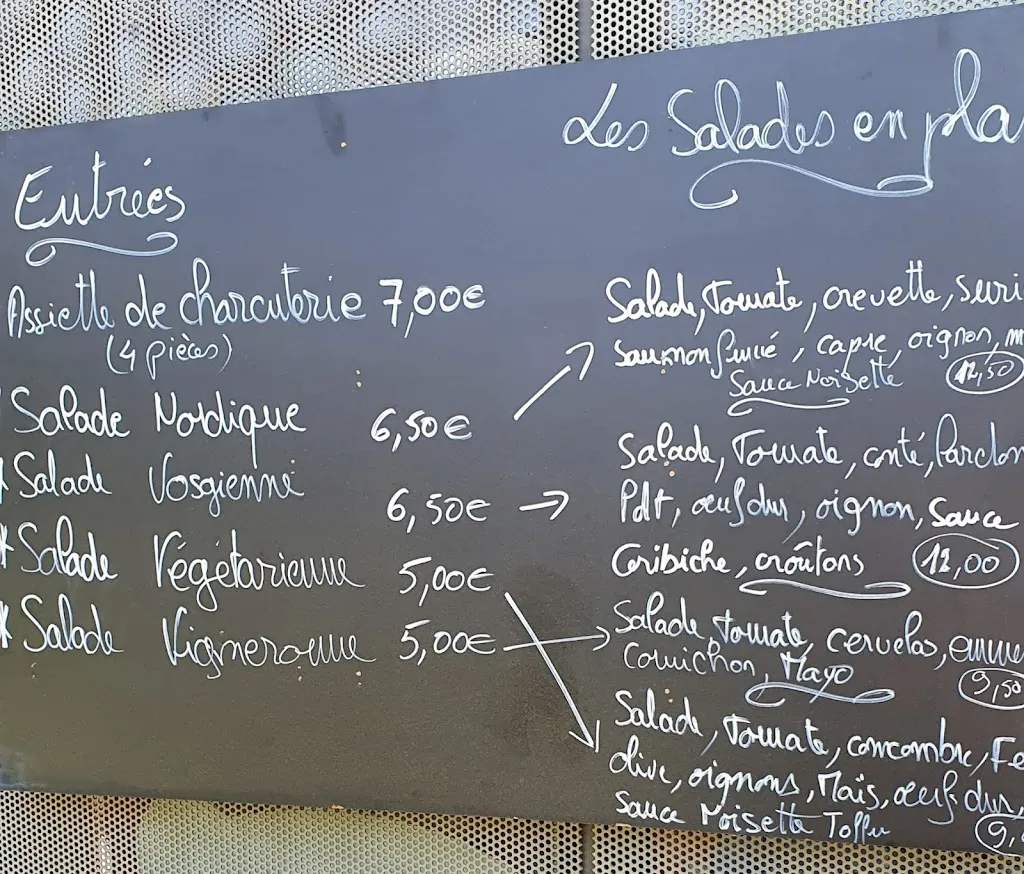 Entrées
Assiette de charcuterie 7,00€
(4 pièces)
Salade Nordique 6,50€
Salade Vosgienne 6,50€
* Salade Végétarienne 5,00€
* Salade Vigneronne 5,00€
Les Salades en pla
Salade, Tomate, crevette, suri
Saumon fumé, capre, oignon, m
Sauce Noisette 12,50
Salade, Tomate, conté, Lardon
Pdt, œuf dur, oignon, Sauce
Gribiche, croûtons 12,00
Salade, tomate, cervelas, emme
Cornichon, Mayo 9,50
Salade, Tomate, concombre, Fe
olive, oignons, Maïs, œuf dur,
Sauce Noisette Toffu 9,